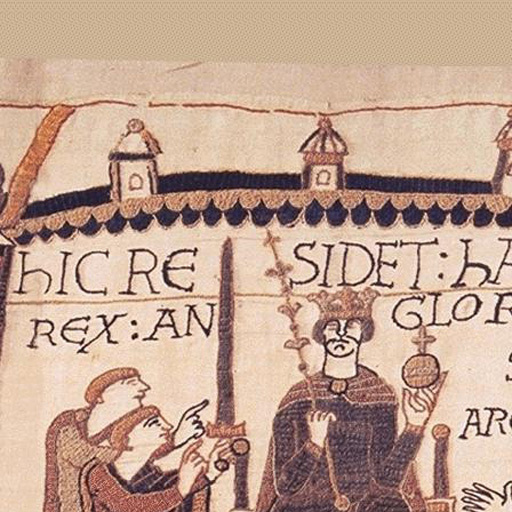 hIC RE SIDET: hA
REX: AN GLOR
ARC